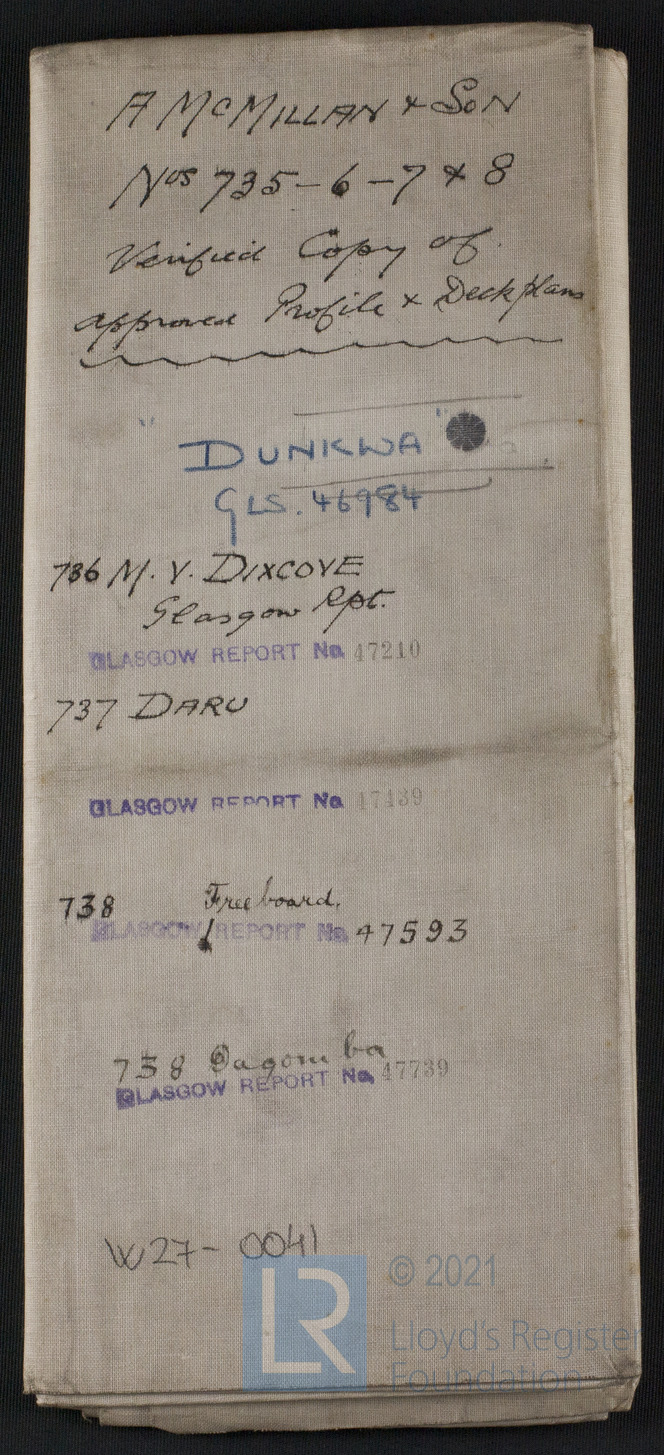 A McMILLAN & SON
Nos 735-6-7 & 8
Verified Copy of
approved Profile & Deck plans
"DUNKWA"
GLS. 46984
736 M.V. DIXCOVE
Glasgow Rpt.
GLASGOW REPORT No. 47210
737 DARU
GLASGOW REPORT No. 17439
738 Freeboard.
GLASGOW REPORT No. 47593
738 Dagomba
GLASGOW REPORT No. 47739
W27-0041
LR
© 2021
Lloyd's Register
Foundation